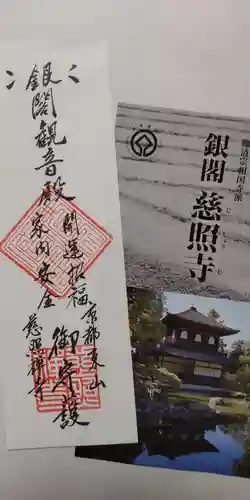 銀閣観音殿
開運招福
家内安全
京都東山
慈照禅寺
御守護
臨済宗相国寺派
銀閣 慈照寺
じしょうじ